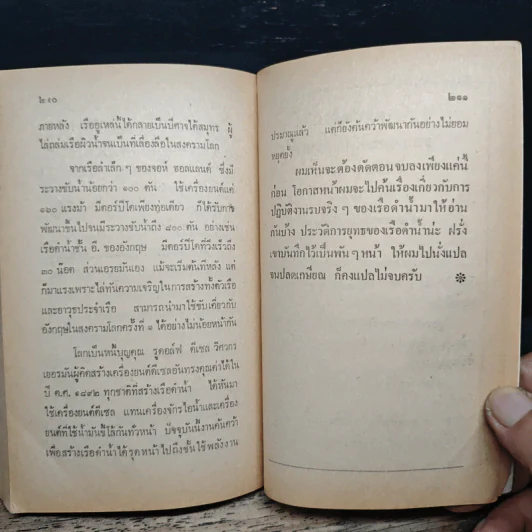 ๒๑๐
ภายหลัง เรืออูเหล่นี้ได้กลายเป็นปีศาจใต้สมุทร ผู้
ไล่ถล่มเรือผิวน้ำจนเป็นที่เลื่องลือในสงครามโลก
จากเรือลำเล็ก ๆ ของจอห์ ฮอลแลนด์ ซึ่งมี
ระวางขับน้ำน้อยกว่า ๑๐๐ ตัน ใช้เครื่องยนต์แค่
๑๖๐ แรงม้า มีตอร์ปิโดเพียงท่อเดียว ก็ได้รับกา
พัฒนาขึ้นไปจนมีระวางขับน้ำถึง ๘๐๐ ตัน อย่างเช่น
เรือดำน้ำชั้น อี. ของอังกฤษ มีตอร์ปิโดที่วิ่งเร็วถึง
๓๐ น๊อต ส่วนเยอรมันเอง แม้จะเริ่มต้นทีหลัง แต่
ก็มาแรงเพราะไล่ทันความเจริญในการสร้างทั้งตัวเรือ
และอาวุธประจำเรือ สามารถนำมาใช้ขับเคี่ยวกับ
อังกฤษในสงครามโลกครั้งที่ ๑ ได้อย่างไม่น้อยหน้ากัน
โลกเป็นหนี้บุญคุณ รูดอล์ฟ ดีเซล วิศวกร
เยอรมันผู้คิดสร้างเครื่องยนต์ดีเซลอันทรงคุณค่าได้ใน
ปี ค.ศ. ๑๘๙๒ ทุกชาติที่สร้างเรือดำน้ำ ได้หันมา
ใช้เครื่องยนต์ดีเซล แทนเครื่องจักรไอน้ำและเครื่อง
ยนต์ที่ใช้น้ำมันขี้โล้กันทั่วหน้า ปัจจุบันนี้งานค้นคว้า
เพื่อสร้างเรือดำน้ำได้รุดหน้าไปถึงขั้นใช้พลังงาน
๒๑๑
ปรมาณูแล้ว แต่ก็ยังค้นคว้าพัฒนากันอย่างไม่ยอม
หยุดยั้ง
ผมเห็นจะต้องตัดตอนจบลงเพียงแค่นี้
ก่อน โอกาสหน้าผมจะไปค้นเรื่องเกี่ยวกับการ
ปฏิบัติงานรบจริง ๆ ของเรือดำน้ำมาให้อ่าน
กันบ้าง ประวัติการยุทธของเรือดำน้ำน่ะ ฝรั่ง
เขาบันทึกไว้เป็นพัน ๆ หน้า ให้ผมไปนั่งแปล
จนปลดเกษียณ ก็คงแปลไม่จบครับ ❊